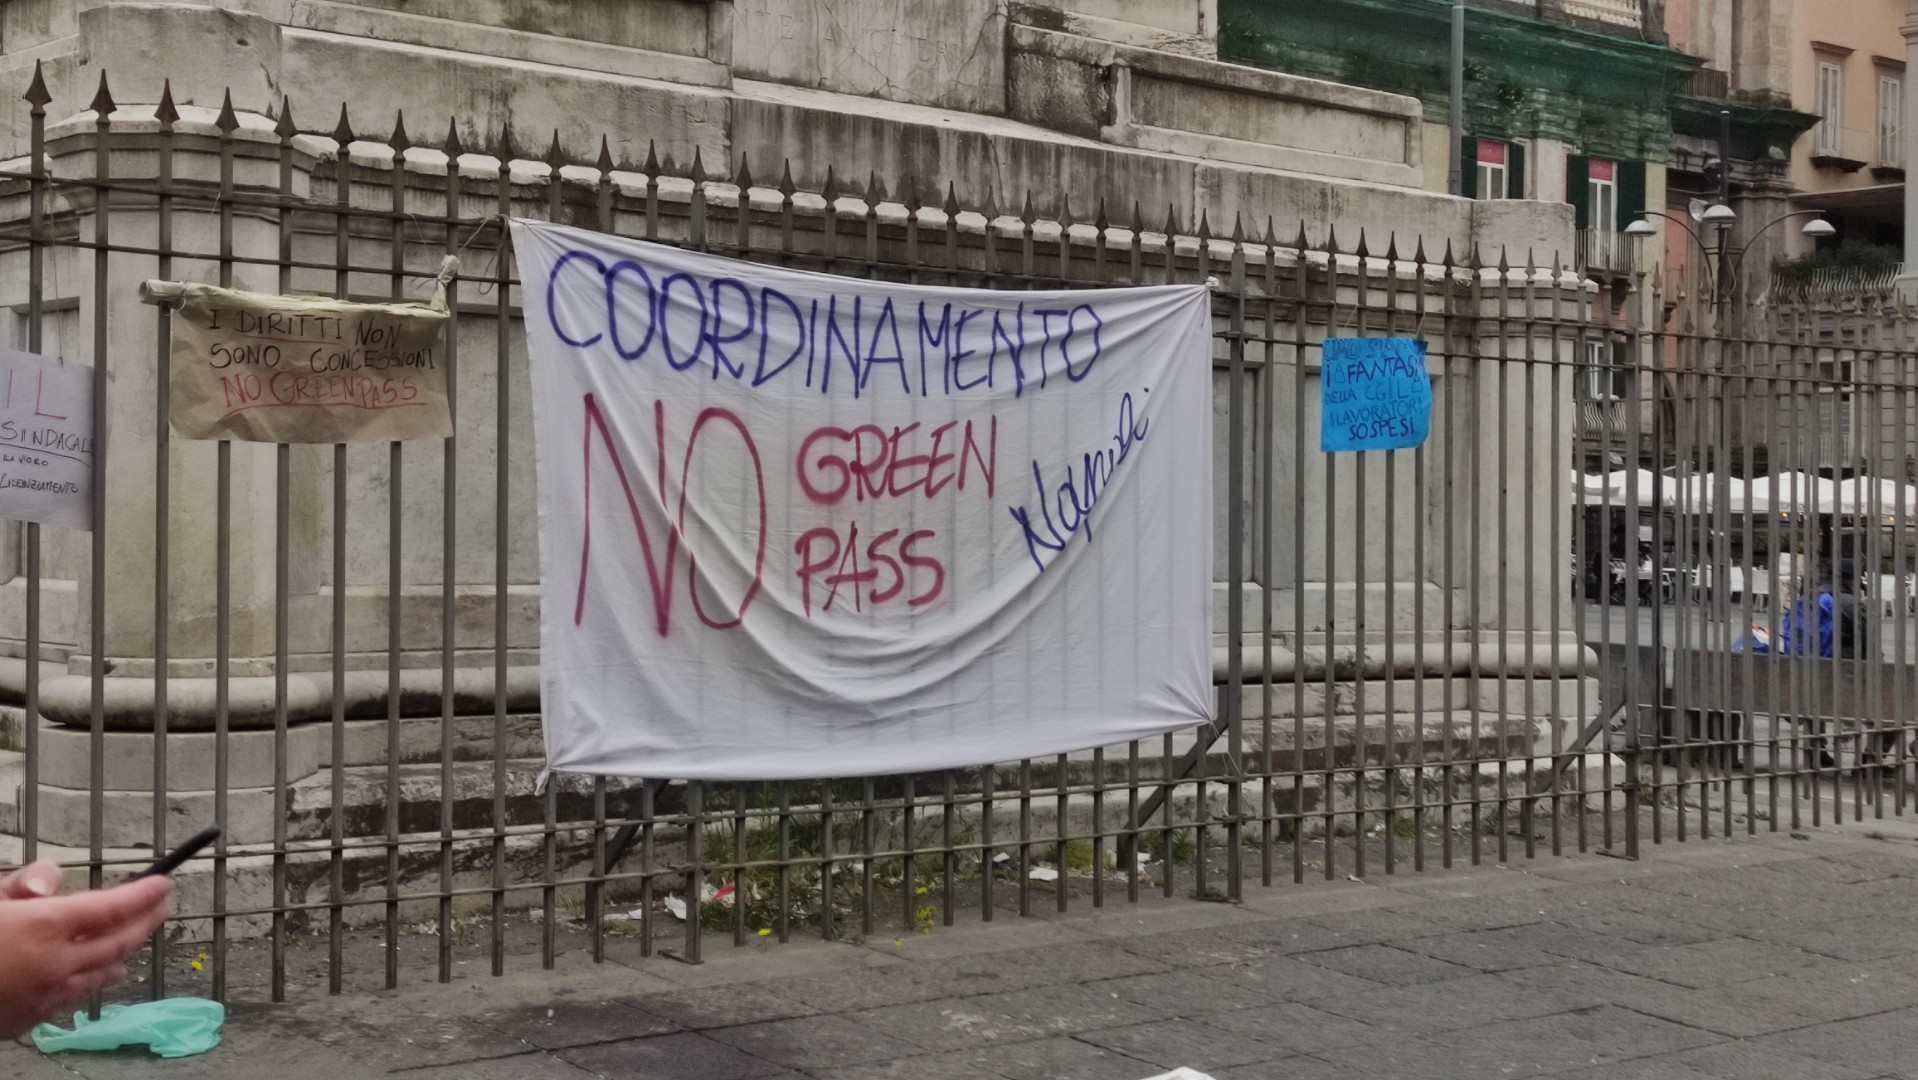 IL
SINDACAL
LAVORO
LICENZIAMENTO
I DIRITTI NON
SONO CONCESSIONI
NO GREENPASS
COORDINAMENTO
NO GREEN
PASS
Napoli
CIAO SIAMO
i FANTASMI
DELLA CGIL
I LAVORATORI
SOSPESI